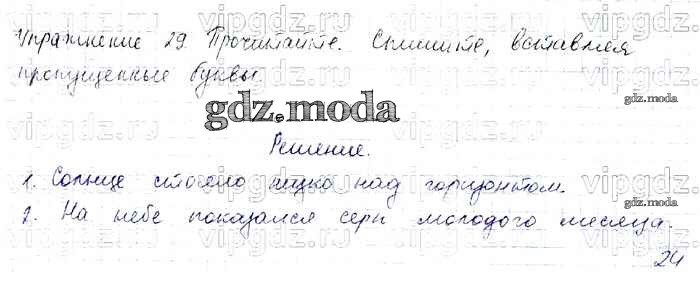 Упражнение 29 Прочитайте. Спишите, вставляя
пропущенные буквы
gdz.moda
gdz.moda
Решение.
1. Солнце стояло низко над горизонтом.
2. На небе показался серп молодого месяца.
24
vipgdz.ru